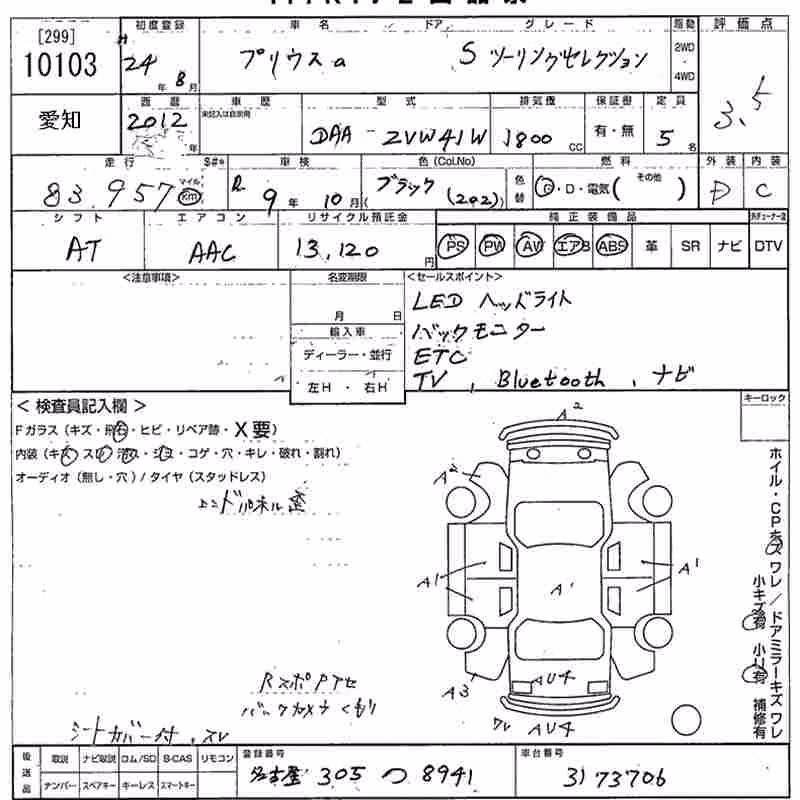 [299]
10103
初度登録 車名 ドア グレード 駆動 評価点
24年 8月 プリウスα S ツーリングセレクション 2WD・4WD
3.5
愛知
西暦 車歴 型式 排気量 保証書 定員
2012年 未記入は自家用 DAA - ZVW41W 1800cc 有・無 5名
走行 S#* 車検 色(Col.No) 燃料 外装 内装
83,957 マイル Km R 9年 10月 ブラック (202) 色替 G・D・電気( その他 ) D C
シフト エアコン リサイクル預託金 純正装備品
AT AAC 13,120円 PS PW AW エアB ABS 革 SR ナビ DTV
<注意事項> 名変期限 <セールスポイント>
月 日
輸入車
ディーラー・並行
左H・右H
LED ヘッドライト
バックモニター
ETC
TV, Bluetooth, ナビ
キーロック
<検査員記入欄>
Fガラス(キズ・飛石・ヒビ・リペア跡・X要)
内装(キズ・スレ・汚ス・シミ・コゲ・穴・キレ・破れ・割れ)
オーディオ(無し・穴)/タイヤ(スタッドレス)
エンドパネル歪
A2
A2
A1 A1 A1
A3
AU4
ワレ AU4
ホイル・CPキズ ワレ/ドアミラーキズ ワレ
小キズ有 小U有 補修有
バックカメラくもり
シートカバー付,スレ
後送品 取説 ナビ取説 ロム/SD B-CAS リモコン
ナンバー スペアキー キーレス スマートキー
登録番号 車台番号
名古屋 305 つ 8941 3173706